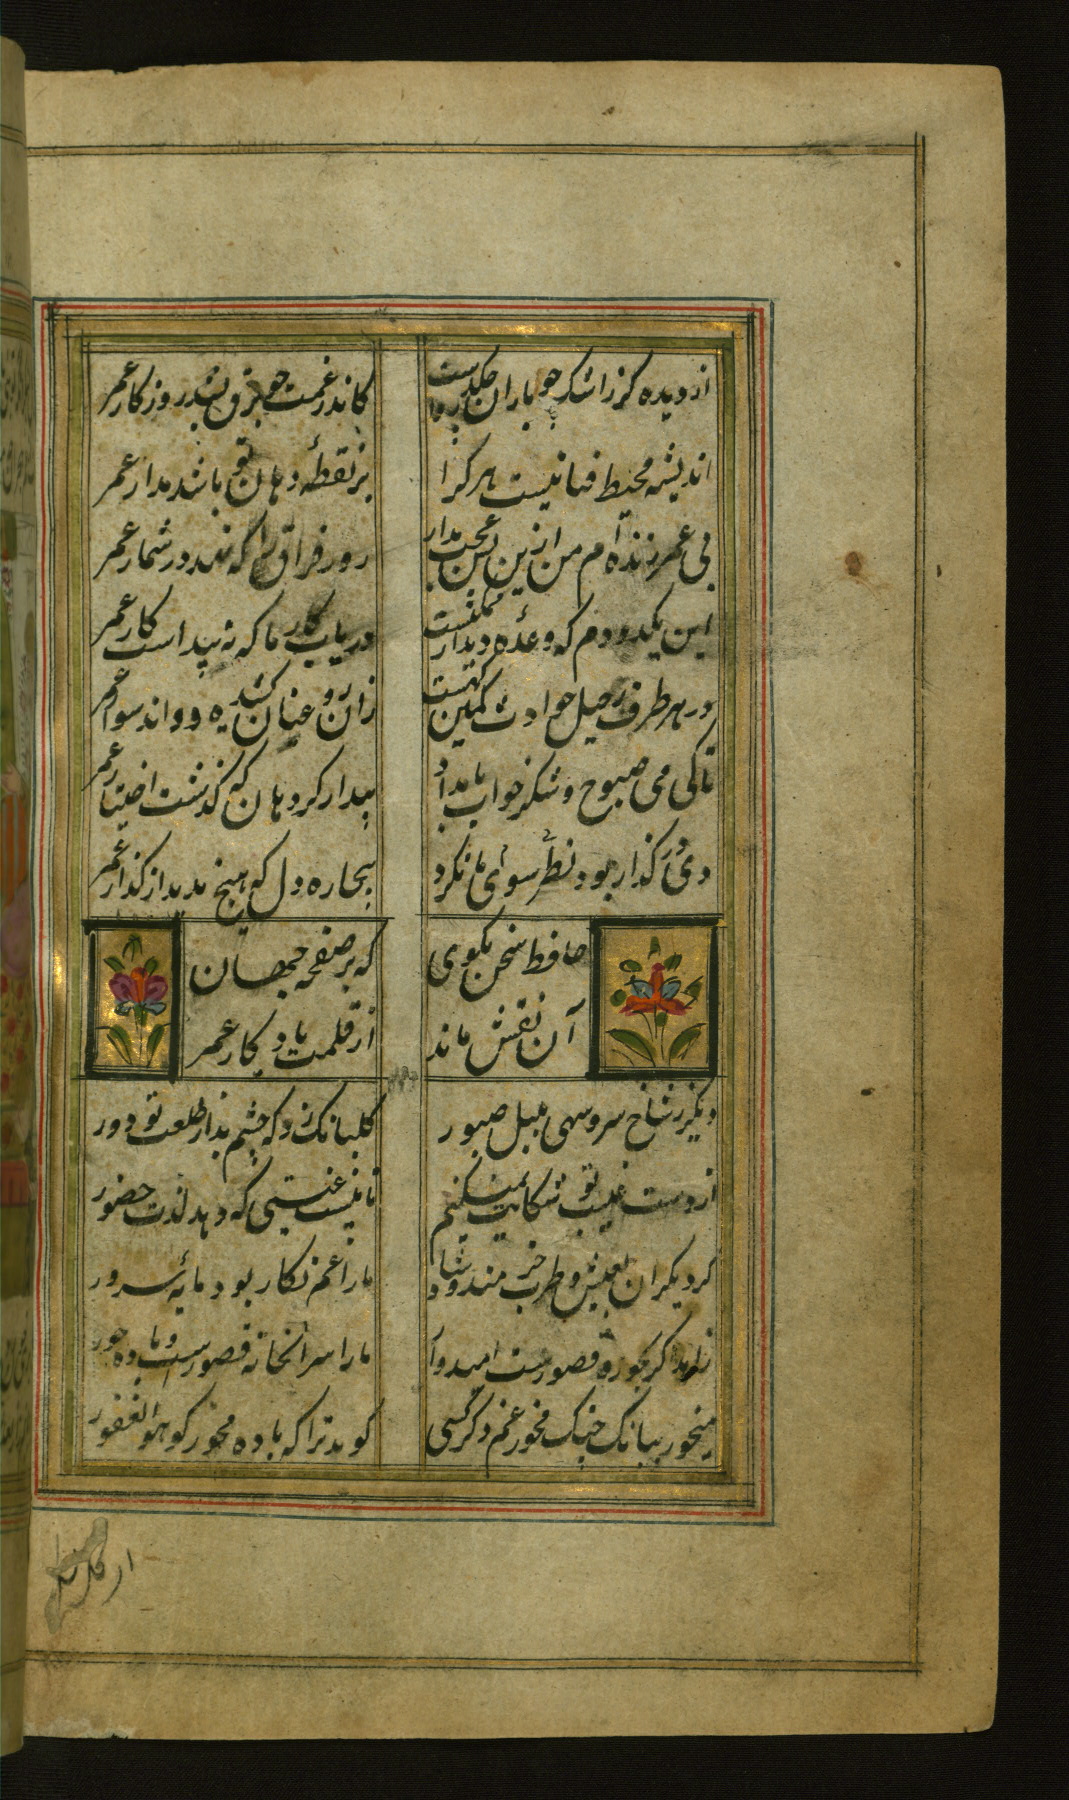 از دیده گر سرشک چو باران چکد رواست
کاندر غمت چو برق بشد روزگار عمر
اندیشه محیط فنا نیست هر کرا
بر نقطهٔ دهان تو باشد مدار عمر
بی عمر زنده‌ام من ازین بس عجب مدار
روز فراق را که نهد در شمار عمر
این یکدو دم که وعدهٔ دیدار ممکنست
دریاب کار ما که نه پیداست کار عمر
در هر طرف ز خیل حوادث کمین گهیست
زان رو عنان کشیده دواند سوار عمر
تا کی می صبوح و شکر خواب بامداد
بیدار گرد هان که گذشت اختیار عمر
دی در گذار بود و نظر سوی ما نکرد
بیچاره دل که هیچ ندید از گذار عمر
حافظ سخن بگوی
که بر صفحهٔ جهان
آن نقش ماند
از قلمت یادگار عمر
دیگر ز شاخ سرو سهی بلبل صبور
گلبانگ زد که چشم بد از طلعت تو دور
از دست غیبت تو شکایت نمیکنم
تا نیست غیبتی که دهد لذت حضور
گر دیگران بعیش و طرب خرمند و شاد
ما را غم نگار بود مایهٔ سرور
زاهد اگر بحور و قصورست امیدوار
ما را سرابخانه قصورست و ماده حور
میخور ببانگ چنگ مخور غم و گر کسی
گوید ترا که باده مخور گو هو الغفور